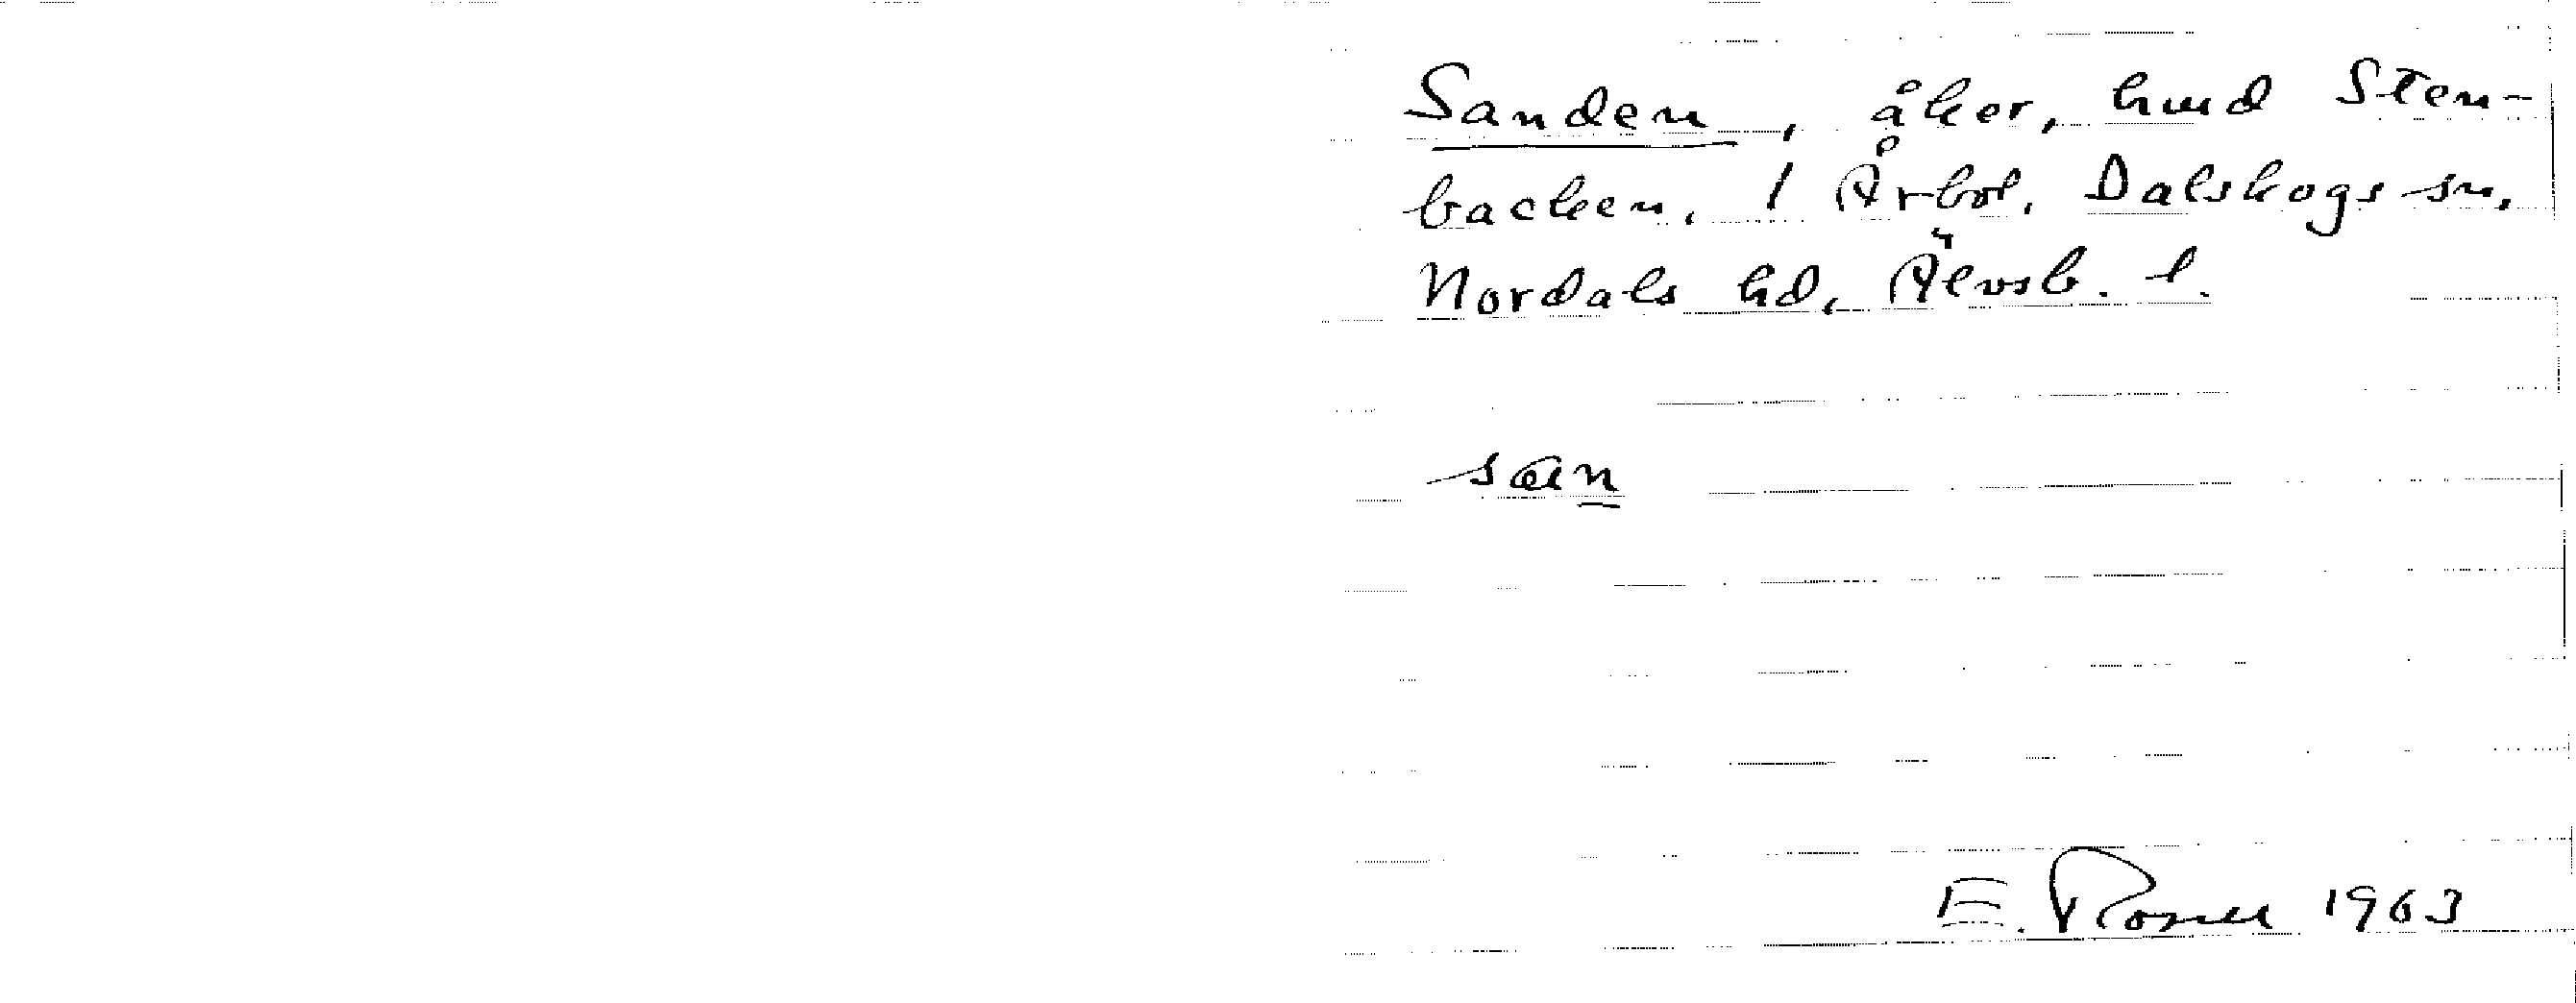 Sanden, åker, hmd Sten-
backen, 1 Årbol, Dalskogs sn,
Nordals hd, Älvsb. l.
san
E. Rosell 1963